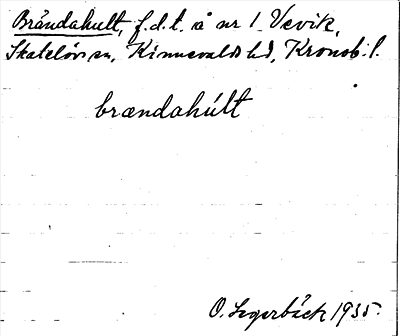 Brändahult, f.d.t. å nr 1 Vevik,
Skatelövs sn, Kinnevalds hd, Kronob. l.
brændahúlt
O. Segerbäck 1935.